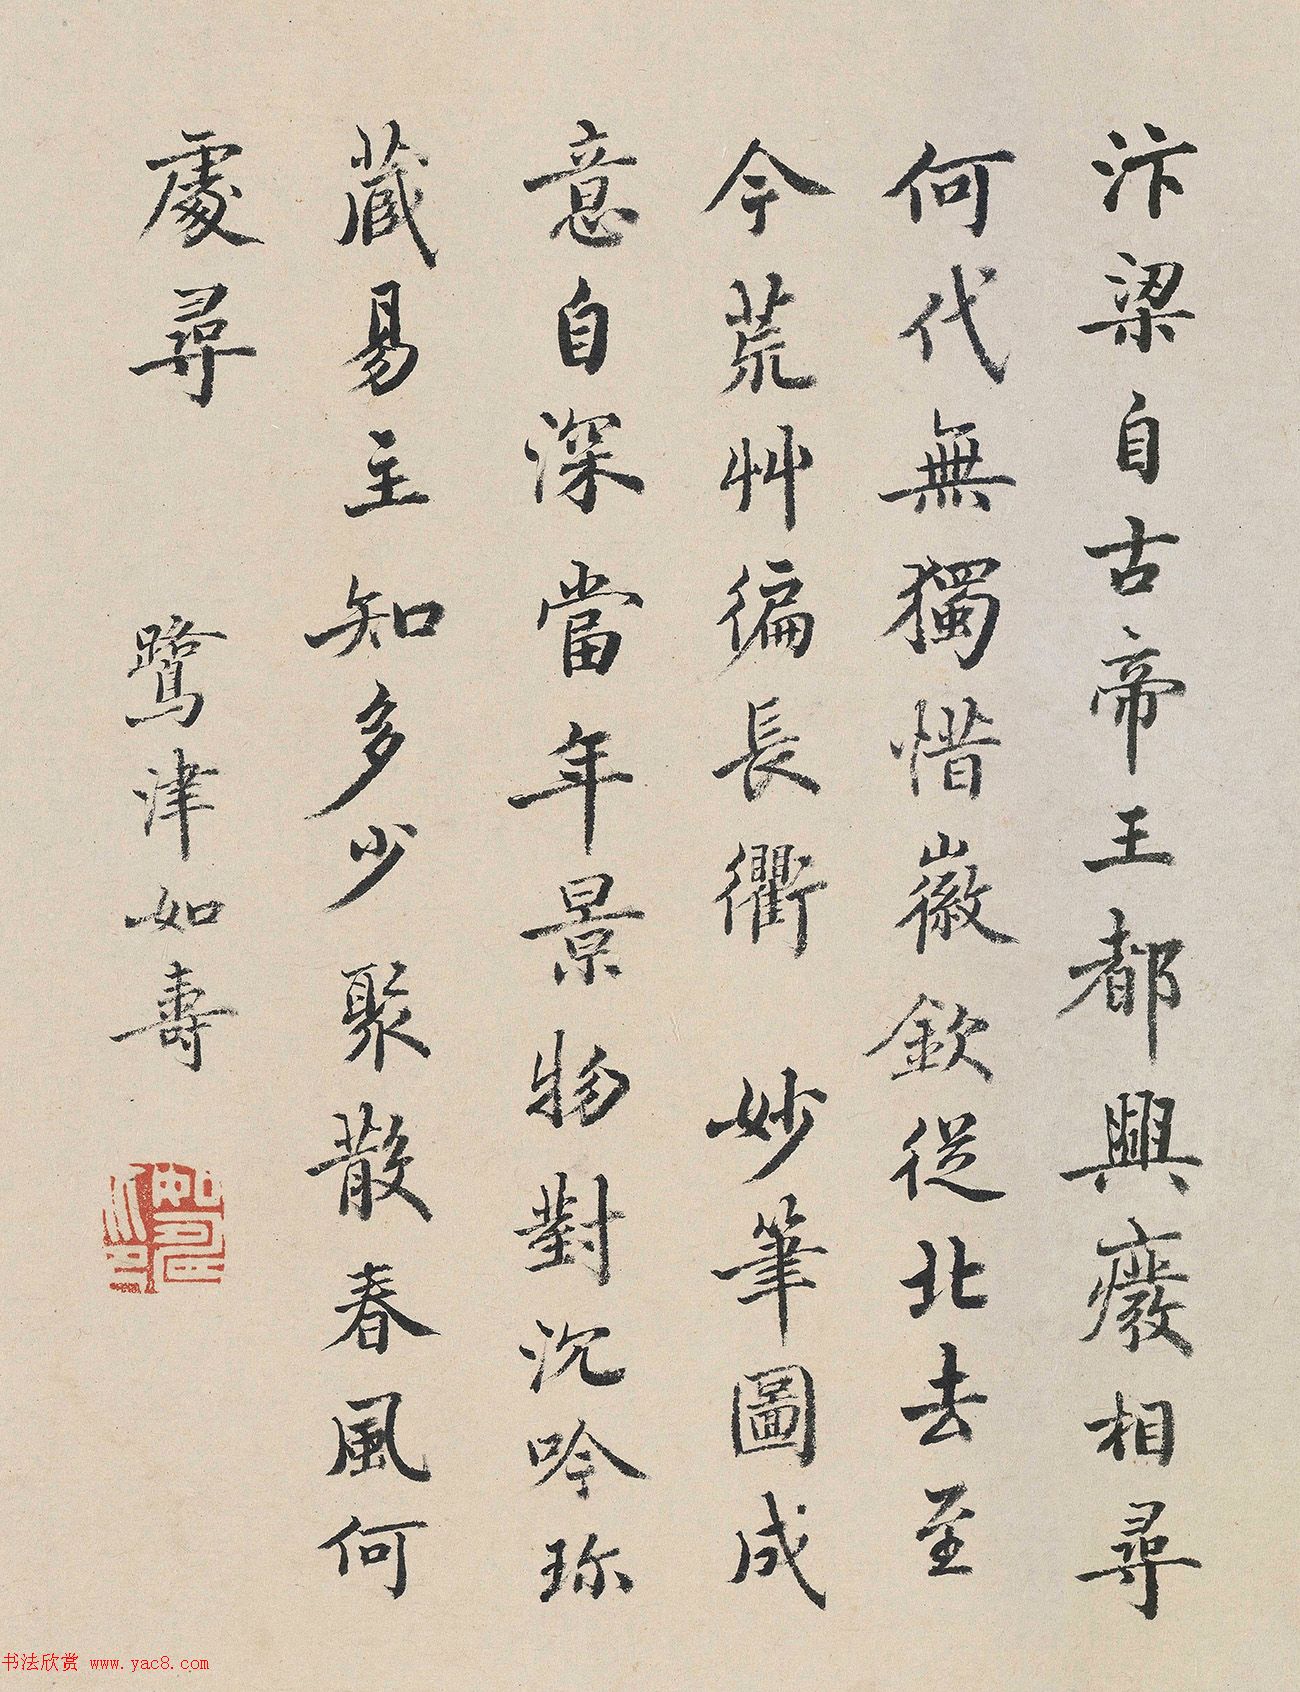 汴梁自古帝王都興廢相尋
何代無獨惜徽欽從北去至
今荒艸徧長衢 妙筆圖成
意自深當年景物對沉吟珎
藏易主知多少聚散春風何
處尋
鷺津如壽
书法欣赏 www.yac8.com